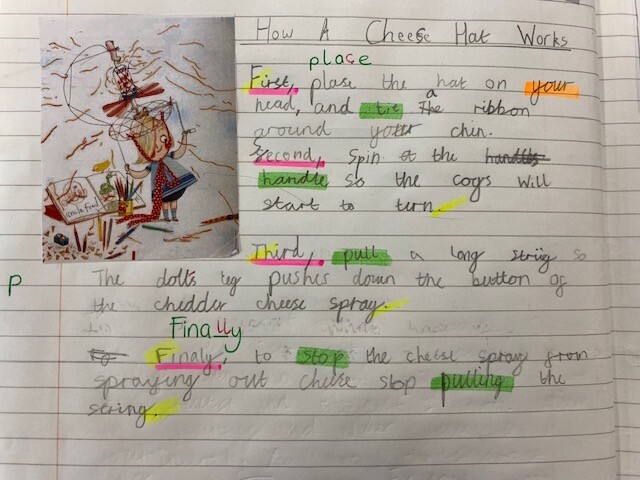 How A Cheese Hat Works
place
First, plase the hat on your
head, and tie The a ribbon
around your chin.
Second, spin the handle
handle so the cogs will
start to turn.
Third, pull a long string so
p
The doll's leg pushes down the button of
the chedder cheese spray.
Finally
Finaly, to stop the cheese spray from
spraying out cheese stop pulling the
string.